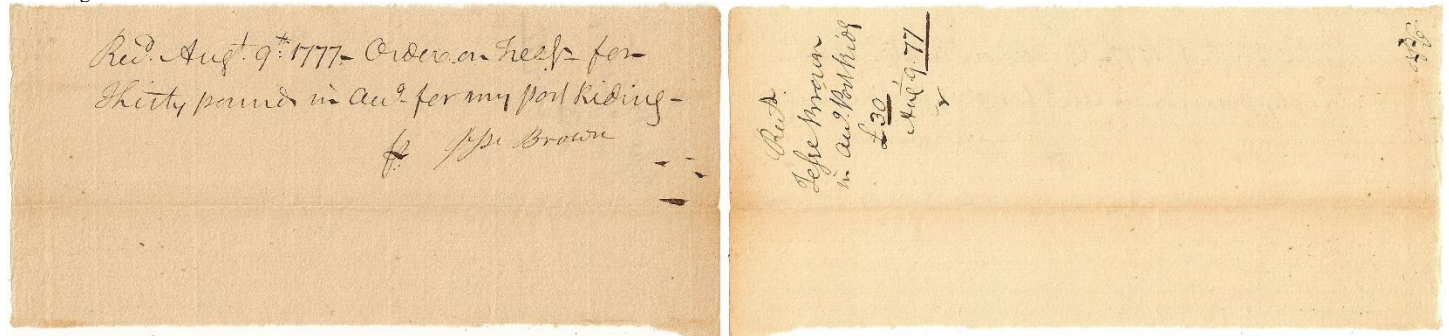 Recd. Augt. 9th. 1777 - Order on Treasr. for
Thirty pounds in accd. for my post Riding -
pr. Jesse Brown
Recd.
Jesse Brown
in accd. Post Ridg
£30
Augt. 9. 77